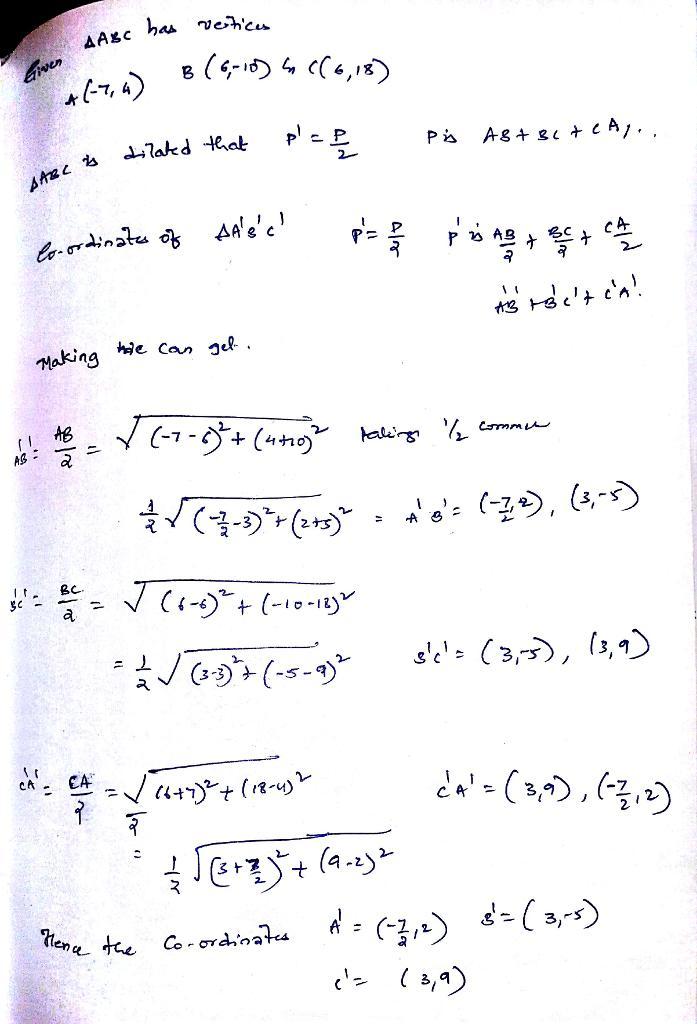 Given ΔABC has vertices
A(-7,4) B(6,-10) & C(6,18)
ΔABC is dilated that P' = P/2 P is AB + BC + CA,..
Co-ordinates of ΔA'B'C' P' = P/2 P' is AB/2 + BC/2 + CA/2
A'B' + B'C' + C'A'.
Making we can get.
A'B' = AB/2 = √(-7-6)² + (4+10)² taking 1/2 common
1/2 √(-7/2-3)² + (2+5)² = A'B' = (-7/2, 2), (3,-5)
B'C' = BC/2 = √(6-6)² + (-10-18)²
= 1/2 √(3-3)² + (-5-9)² B'C' = (3,-5), (3,9)
C'A' = CA/2 = √(6+7)² + (18-4)² / 2 C'A' = (3,9), (-7/2, 2)
= 1/2 √(3+7/2)² + (9-2)²
Hence the Co-ordinates A' = (-7/2, 2) B' = (3,-5)
C' = (3,9)